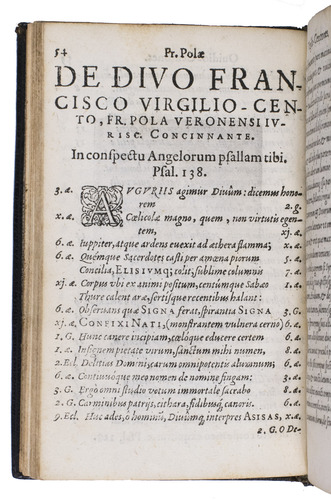 54 Pr. Polæ
DE DIVO FRAN-
CISCO VIRGILIO-CEN-
TO, FR. POLA VERONENSI IV-
RISC. CONCINNANTE.
In conspectu Angelorum psallam tibi.
Psal. 138.
3. æ. AVGVRIIS agimur Divûm: dicemus hono-
rem 2. g.
x. æ. Cœlicolæ magno, quem, non virtutis egen-
tem, xj. æ.
6. æ. Iuppiter, atque ardens evexit ad æthera flamma; x. æ.
6. æ. Quémque Sacerdotes casti per amœna piorum 5. æ.
Concilia, ELISIVMq; colit, sublime columnis 7. æ.
xj. æ. Corpus ubi ex animi positum, centùmque Sabæo 1. æ.
Thure calent aræ, sertisque recentibus halant:
6. æ. Observans quæ SIGNA ferat, spirantia SIGNA 3. G.
xj. æ. CONFIXI NATI, (monstrantem vulnera cerno) 6. æ.
1. G. Hunc canere incipiam, cæloque educere certem 6. æ.
1. æ. Insignem pietate virum, sanctum mihi numen, 8. æ.
2. Ecl. Delitias Domini, carum omnipotentis alumnum; 6. æ.
6. æ. Continuoque meo nomen de nomine fingam: 3. æ.
3. G. Ergo omni studio votum immortale sacrabo 8. æ.
2. G. Carminibus patrijs, cithara, fidibusq; canoris. 6. æ.
9. Ecl. Hac ades, ô homini, Divûmq; interpres ASISAS, x. æ.
2. G. O De-